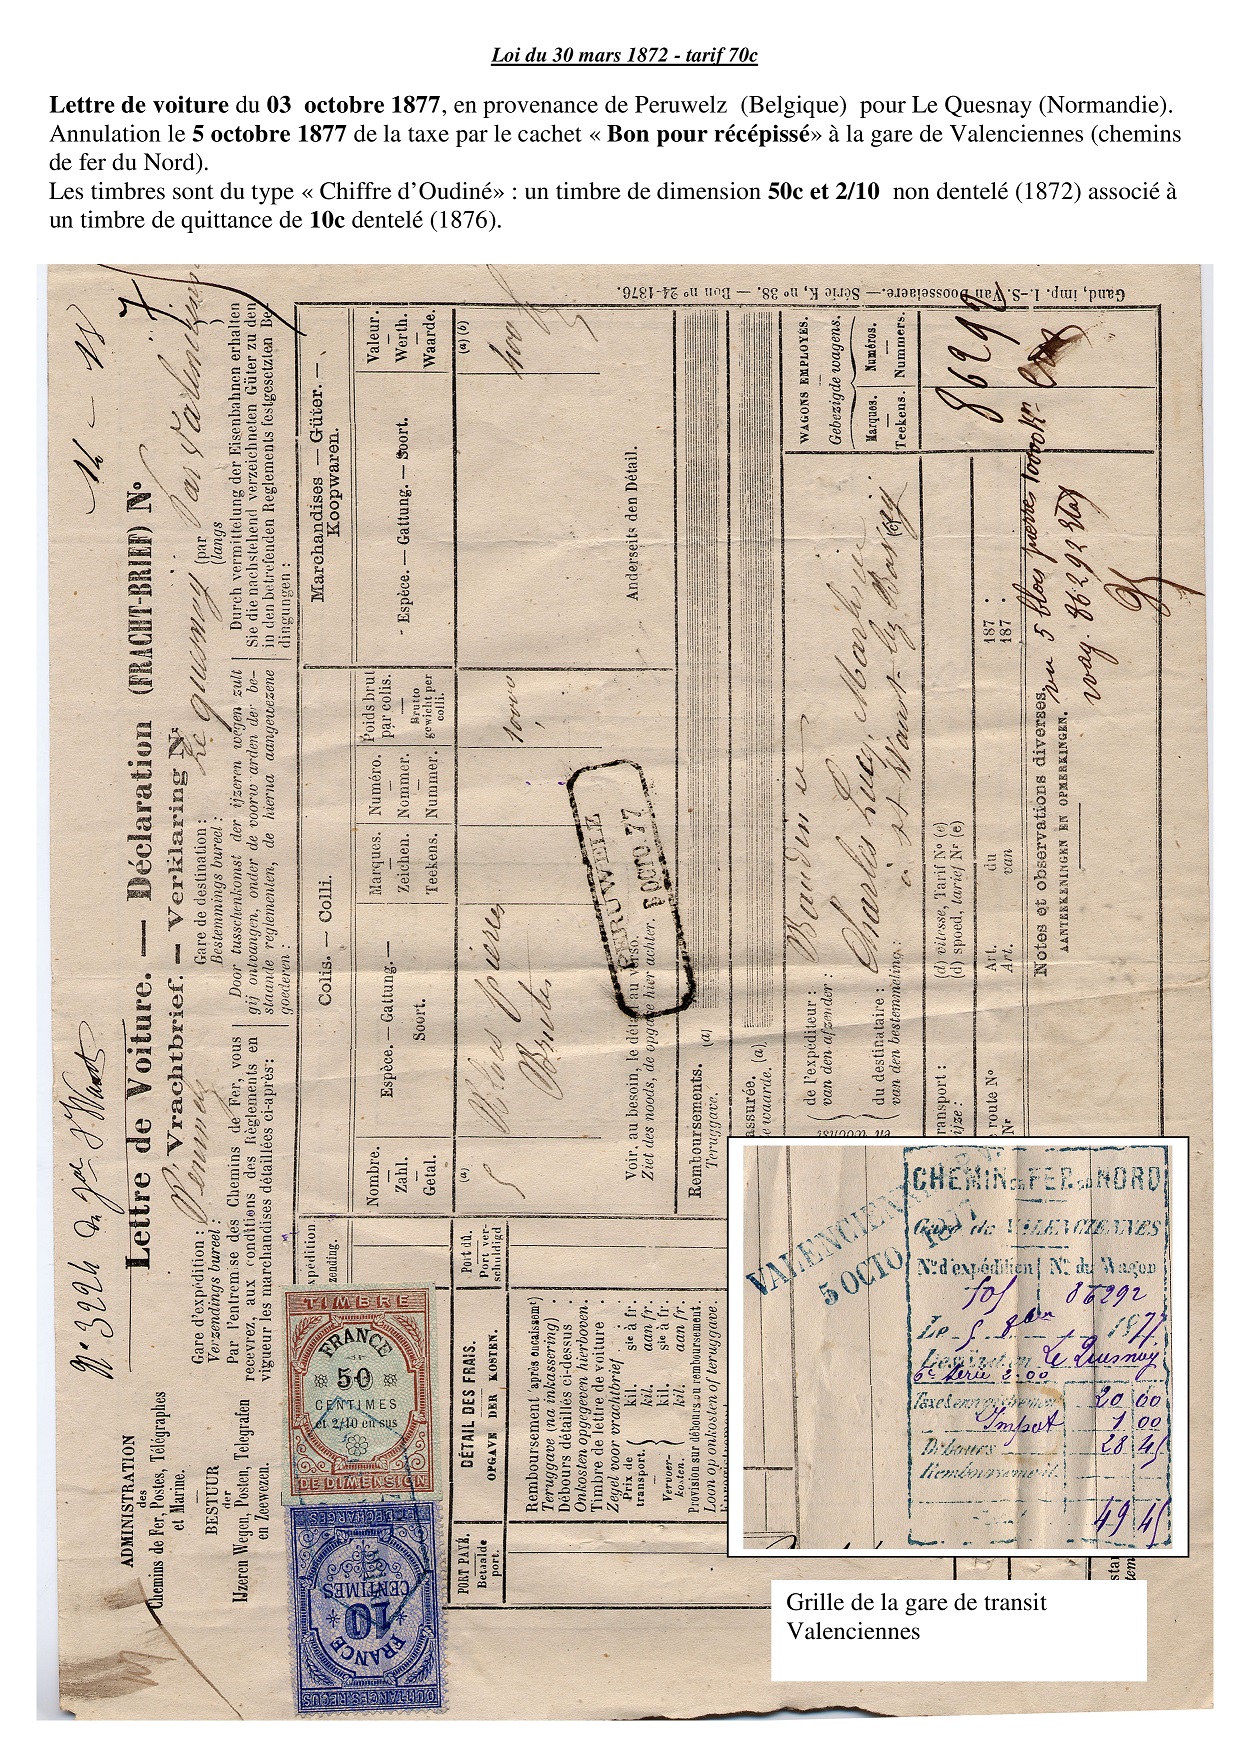 Loi du 30 mars 1872 - tarif 70c
Lettre de voiture du 03 octobre 1877, en provenance de Peruwelz (Belgique) pour Le Quesnay (Normandie).
Annulation le 5 octobre 1877 de la taxe par le cachet « Bon pour récépissé» à la gare de Valenciennes (chemins
de fer du Nord).
Les timbres sont du type « Chiffre d'Oudiné» : un timbre de dimension 50c et 2/10 non dentelé (1872) associé à
un timbre de quittance de 10c dentelé (1876).
14 - 18
Lettre de Voiture. — Déclaration (FRACHT-BRIEF) No
Vrachtbrief. — Verklaring Nr
ADMINISTRATION
des
Chemins de Fer, Postes, Télégraphes
et Marine.
BESTUUR
der
IJzeren Wegen, Posten, Telegrafen
en Zeewezen.
Gare d'expédition :
Verzendings bureel :
Gare de destination :
Bestemmings bureel :
(par
(langs
Par l'entremise des Chemins de Fer, vous
recevrez, aux conditions des Règlements en
vigueur les marchandises détaillées ci-après:
Door tusschenkomst der ijzeren wegen zult
gij ontvangen, onder de voorwaarden der be-
staande reglementen, de hierna aangewezene
goederen :
Durch vermittelung der Eisenbahnen erhalten
Sie die nachstehend verzeichneten Güter zu den
in den betreffenden Reglements festgesetzten Be-
dingungen :
Colis. — Colli.
Marchandises — Güter. —
Koopwaren.
Nombre.
Zahl.
Getal.
Espèce. — Gattung. —
Soort.
Marques.
Zeichen.
Teekens.
Numéro.
Nommer.
Nummer.
Poids brut
par colis.
Brutto
gewicht per
colli.
Espèce. — Gattung. — Soort.
Valeur.
Werth.
Waarde.
(a)
(a) (b)
5 Blocs pierres
Brutes
10000
400
Voir, au besoin, le détail au verso.
Ziet des noods, de opgave hier achter.
Anderseits den Détail.
PERUWELZ
OCTO. 77
Remboursements. (a)
Teruggave.
assurée. (a)
e waarde.
de l'expéditeur :
van den afzender :
du destinataire :
van den bestemmeling :
WAGONS EMPLOYÉS.
Gebezigde wagens.
Marques.
Teekens.
Numéros.
Nummers.
86292
(d) vitesse, Tarif No (e)
(d) spoed, tarief Nr (e)
ransport :
ijze :
route No
Nr
Art.
Art.
du
van
187 :
187 :
Notes et observations diverses.
AANTEEKENINGEN EN OPMERKINGEN.
vu 5 blocs pierres 10000 k
wag. 86292 Etat
Gand, imp. I.-S. Van Doosselaere.— Série K, no 38. — Bon no 24-1876.
xpédition
zending.
Port dû.
Port ver-
schuldigd
PORT PAYÉ.
Betaalde
port.
DÉTAIL DES FRAIS.
OPGAVE DER KOSTEN.
Remboursement (après encaissemt)
Teruggave (na inkassering)
Débours détaillés ci-dessus
Onkosten opgegeven hierboven.
Timbre de lettre de voiture
Zegel voor vrachtbrief
Prix de
transport.
Vervoer-
kosten.
kil.
kil.
kil.
kil.
sie à fr:
aan fr:
sie à fr:
aan fr:
Provision sur débours ou remboursement.
Loon op onkosten of teruggave.
TIMBRE
FRANCE
50
CENTIMES
et 2/10 en sus
DE DIMENSION
FRANCE
10
CENTIMES
QUITTANCES REÇUS
ET DÉCHARGES
VALENCIENNES
5 OCTO 1877
CHEMIN DE FER DU NORD
Gare de VALENCIENNES
No d'expédition No du Wagon
86292
Le 5 8bre 1877
Destination Le Quesnoy
6e Serie 2.00
20 00
Impot 1 00
Débours 28 45
Remboursement
49 45
Grille de la gare de transit
Valenciennes